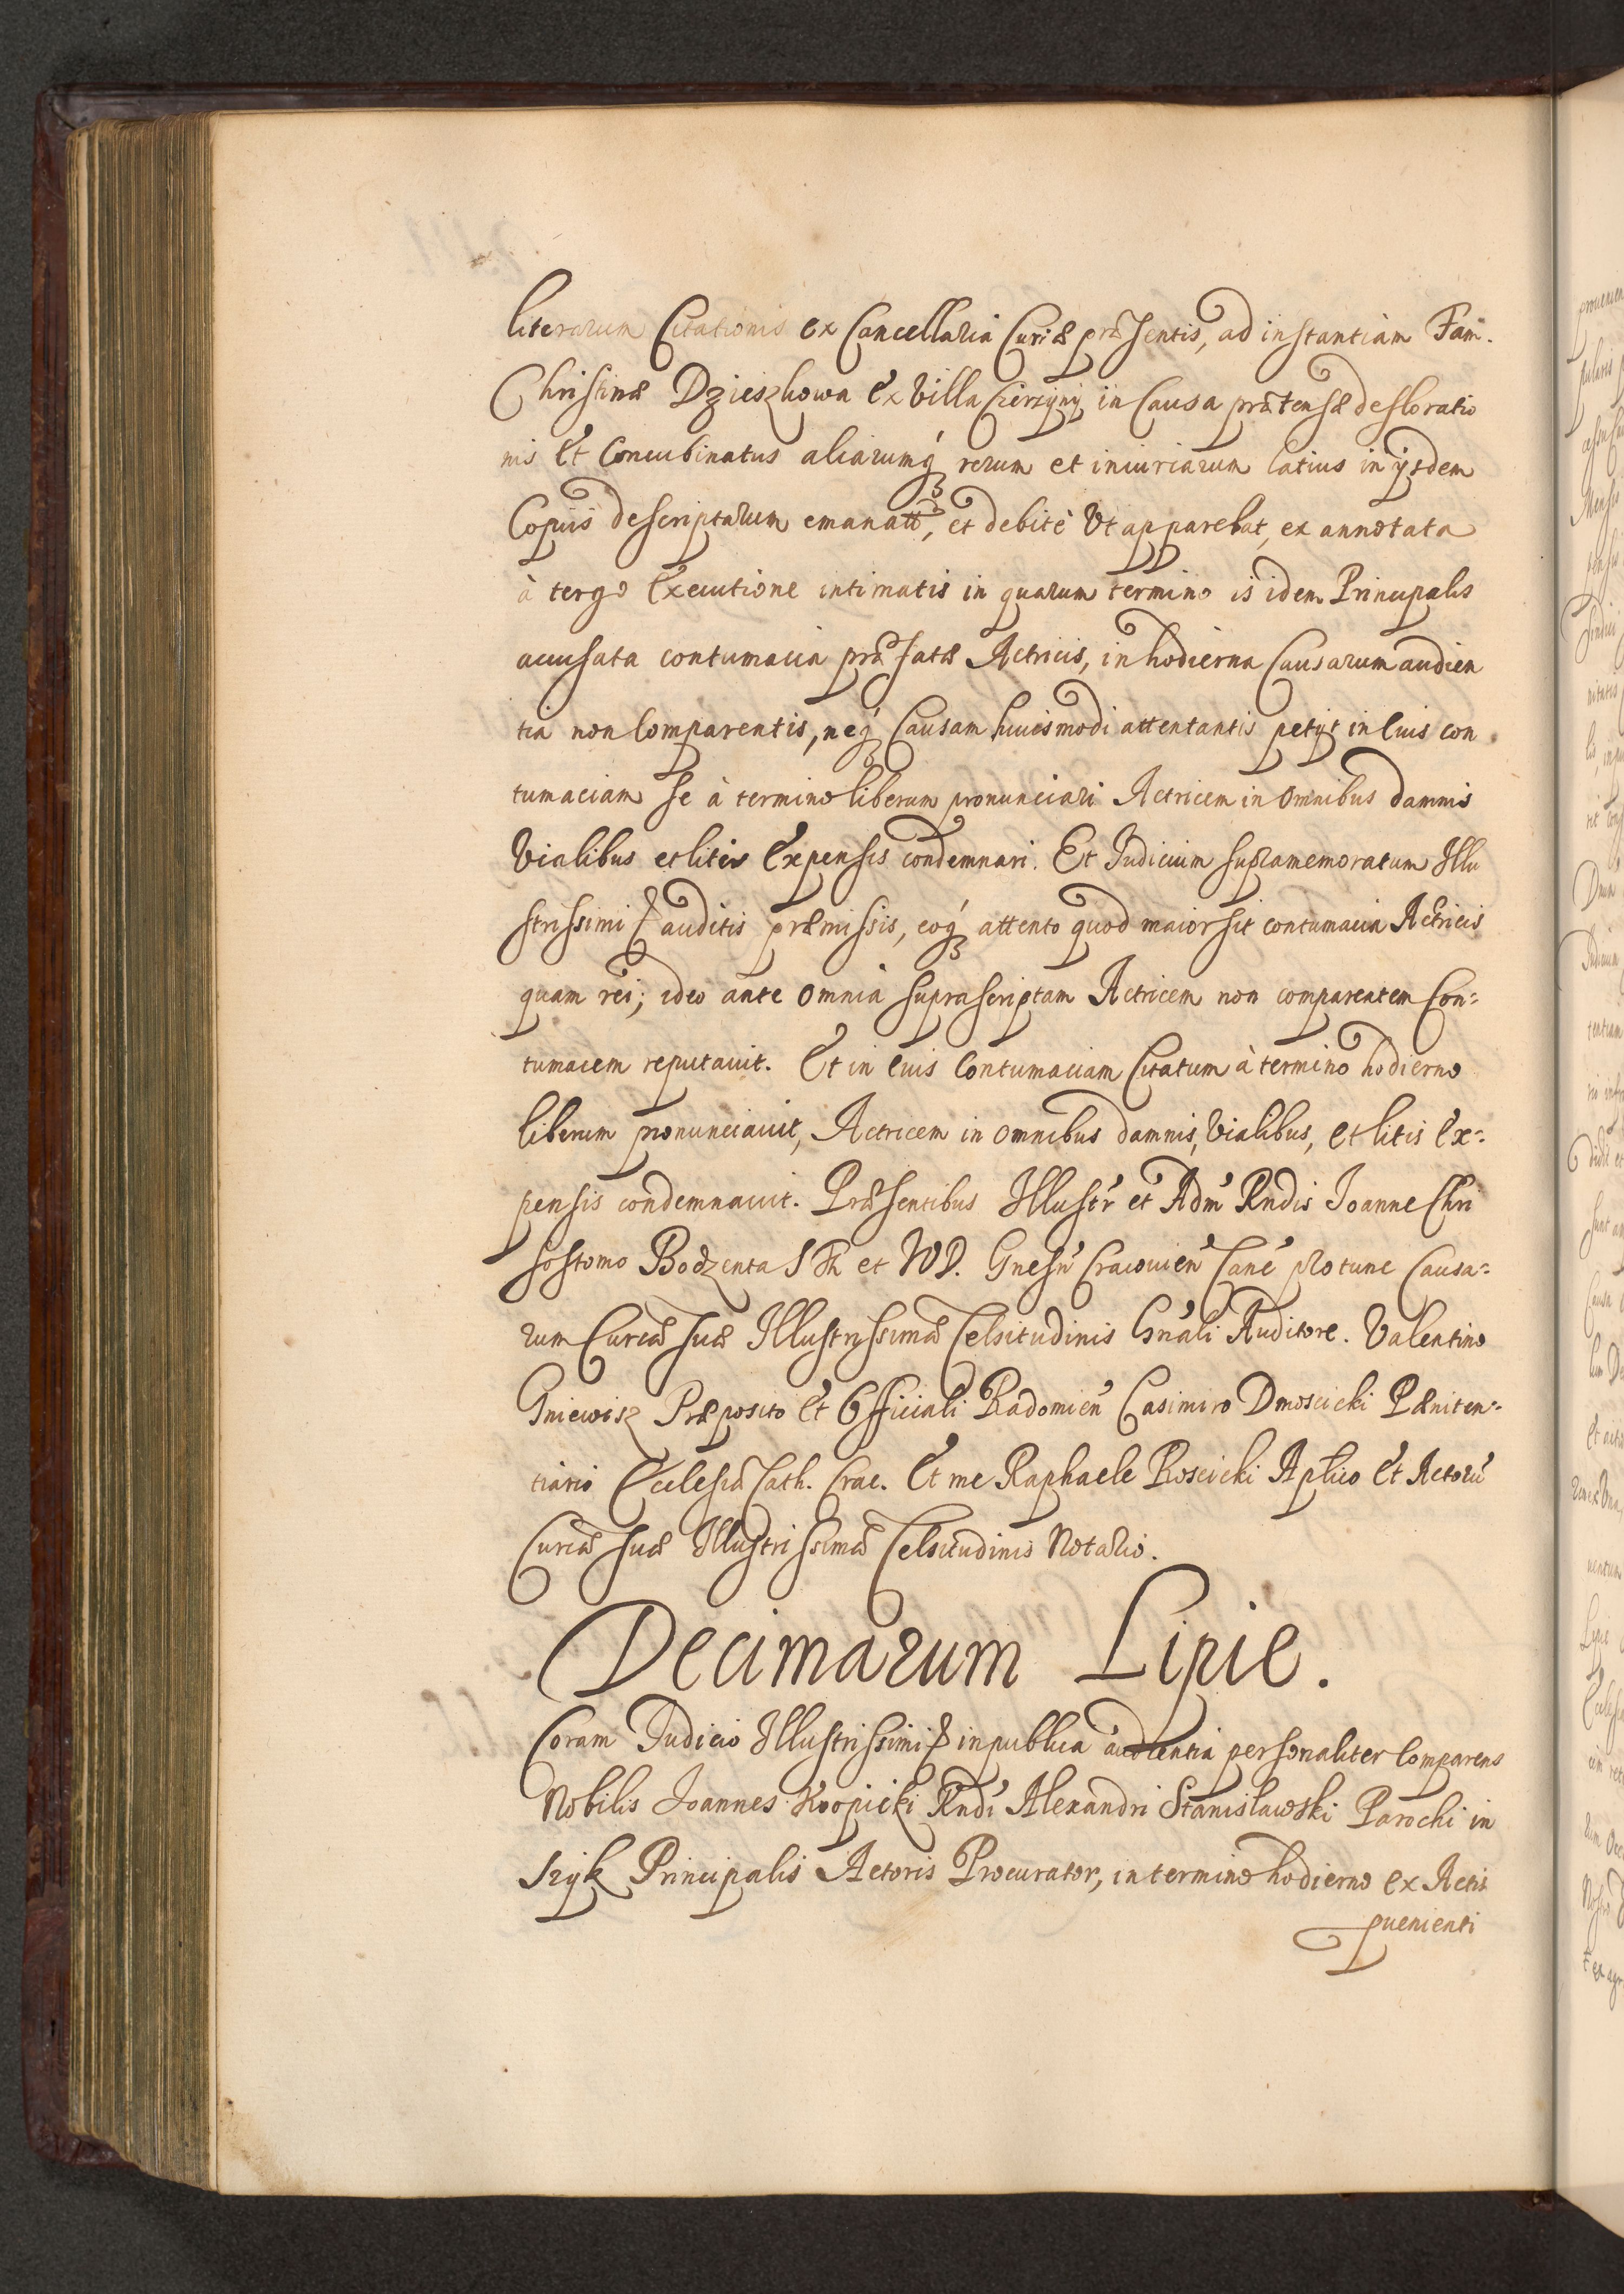 literarum Citationis ex Cancellaria Curiæ præsentis, ad instantiam Fam.
Christinæ Dzieszkowa ex Villa Cierzyny in Causa prætensæ defloratio
nis et Concubinatus aliarumq́ꝫ rerum et iniuriarum latius in ijsdem
Copiis descriptarum emanatt, et debitè Vt apparebat, ex annotata
à tergo Executione intimatis in quarum termino is idem Principalis
accusata contumacia præfatæ Actricis, in hodierna Causarum audien
tia non Comparentis, neq́ꝫ Causam huiusmodi attentantis petijt in Euis con
tumaciam se à termino liberum pronunciari Actricem in Omnibus damnis
Vialibus et litis Expensis condemnari. Et Iudicium supramemoratum Illu
strissimi auditis præmissis, eoq́ꝫ attento quod maior sit contumacia Actricis
quam rei; ideo ante Omnia suprascriptam Actricem non comparentem Con=
tumacem reputauit. Et in Euis Contumaciam Citatum à termino hodierno
liberum pronunciauit, Actricem in Omnibus damnis, Vialibus, et litis Ex=
pensis condemnauit. Præsentibus Illustr̃ et Adm̃ Rndis Ioanne Chri
sostomo Bodzenta S Th et WD. Gnesn̄ Cracouien̄ Can̄c̄ pro tunc Causa=
rum Curiæ suæ Illustrissimæ Celsitudinis Gnāli Auditore. Valentino
Gniewisz Præposito et Officiali Radomien̄ Casimiro Dmoscicki Pæniten=
tiario Ecclesiæ Cath. Crac. Et me Raphaele Roscicki Aplico et Actorū
Curiæ suæ Illustrissimæ Celsitudinis Notario.
Decimarum Lipie.
Coram Iudicio Illustrissimi in publica audientia personaliter Comparens
Nobilis Ioannes Kropicki Rndi Alexandri Stanisławski Parochi in
Szyk Principalis Actoris Procurator, in termino hodierno ex Actis
puenienti